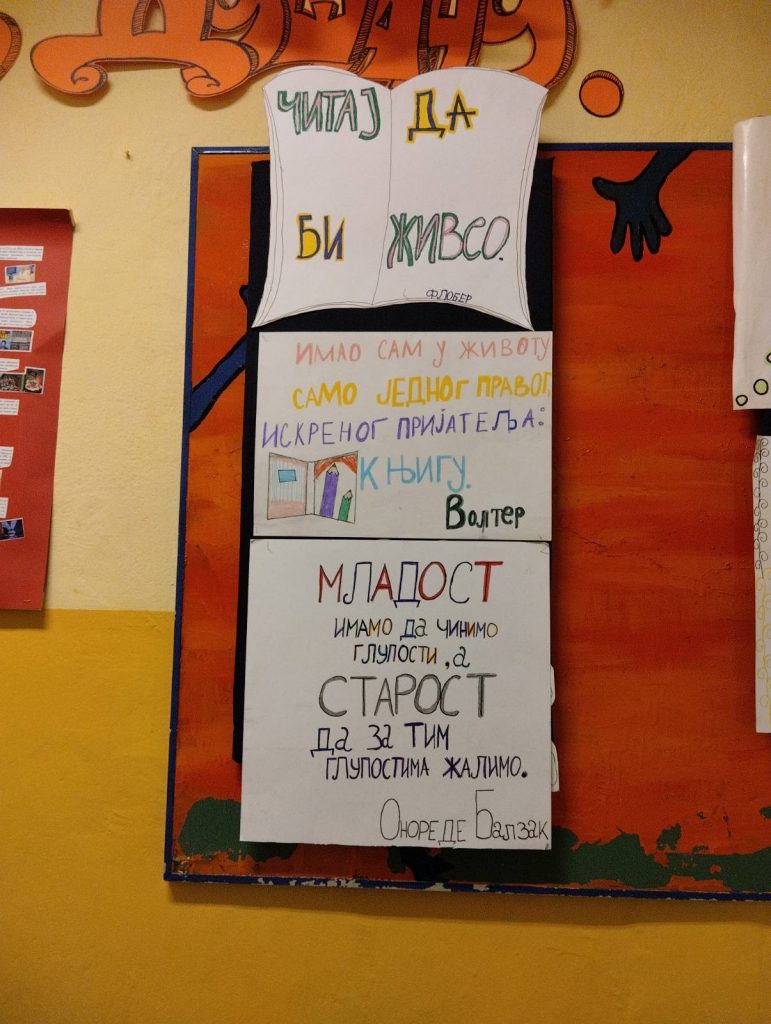 ЧИТАЈ ДА
БИ ЖИВСО.
ФЛОБЕР
ИМАО САМ У ЖИВОТУ
САМО ЈЕДНОГ ПРАВОГ,
ИСКРЕНОГ ПРИЈАТЕЉА:
КЊИГУ.
Волтер
МЛАДОСТ
ИМАМО ДА ЧИНИМО
ГЛУПОСТИ, а
СТАРОСТ
Да За ТИМ
ГЛУПОСТИМА ЖАЛИМО.
ОНОРЕ ДЕ Балзак